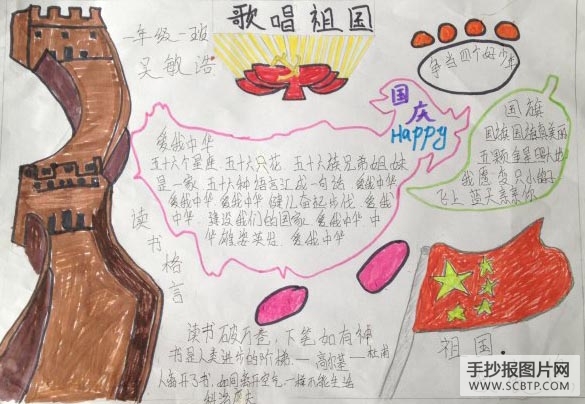 歌唱祖国
一年级一班
吴敏浩
争当四个好少年
国庆
Happy
国旗
国旗国旗真美丽
五颗金星照大地
我愿变只小鸟
飞上蓝天亲亲你
爱我中华
五十六个星座 五十六只花 五十六族兄弟姐妹
是一家 五十六种语言汇成一句话 爱我中华
爱我中华 爱我中华 健儿奋起步伐 爱我
中华 建设我们的国家 爱我中华 中
华雄姿英发 爱我中华
读书格言
读书破万卷,下笔如有神
书是人类进步的阶梯 — 高尔基 — 杜甫
人离开了书,如同离开空气一样不能生活
科洛廖夫
祖国.
手抄报图片网
WWW.SCBTP.COM